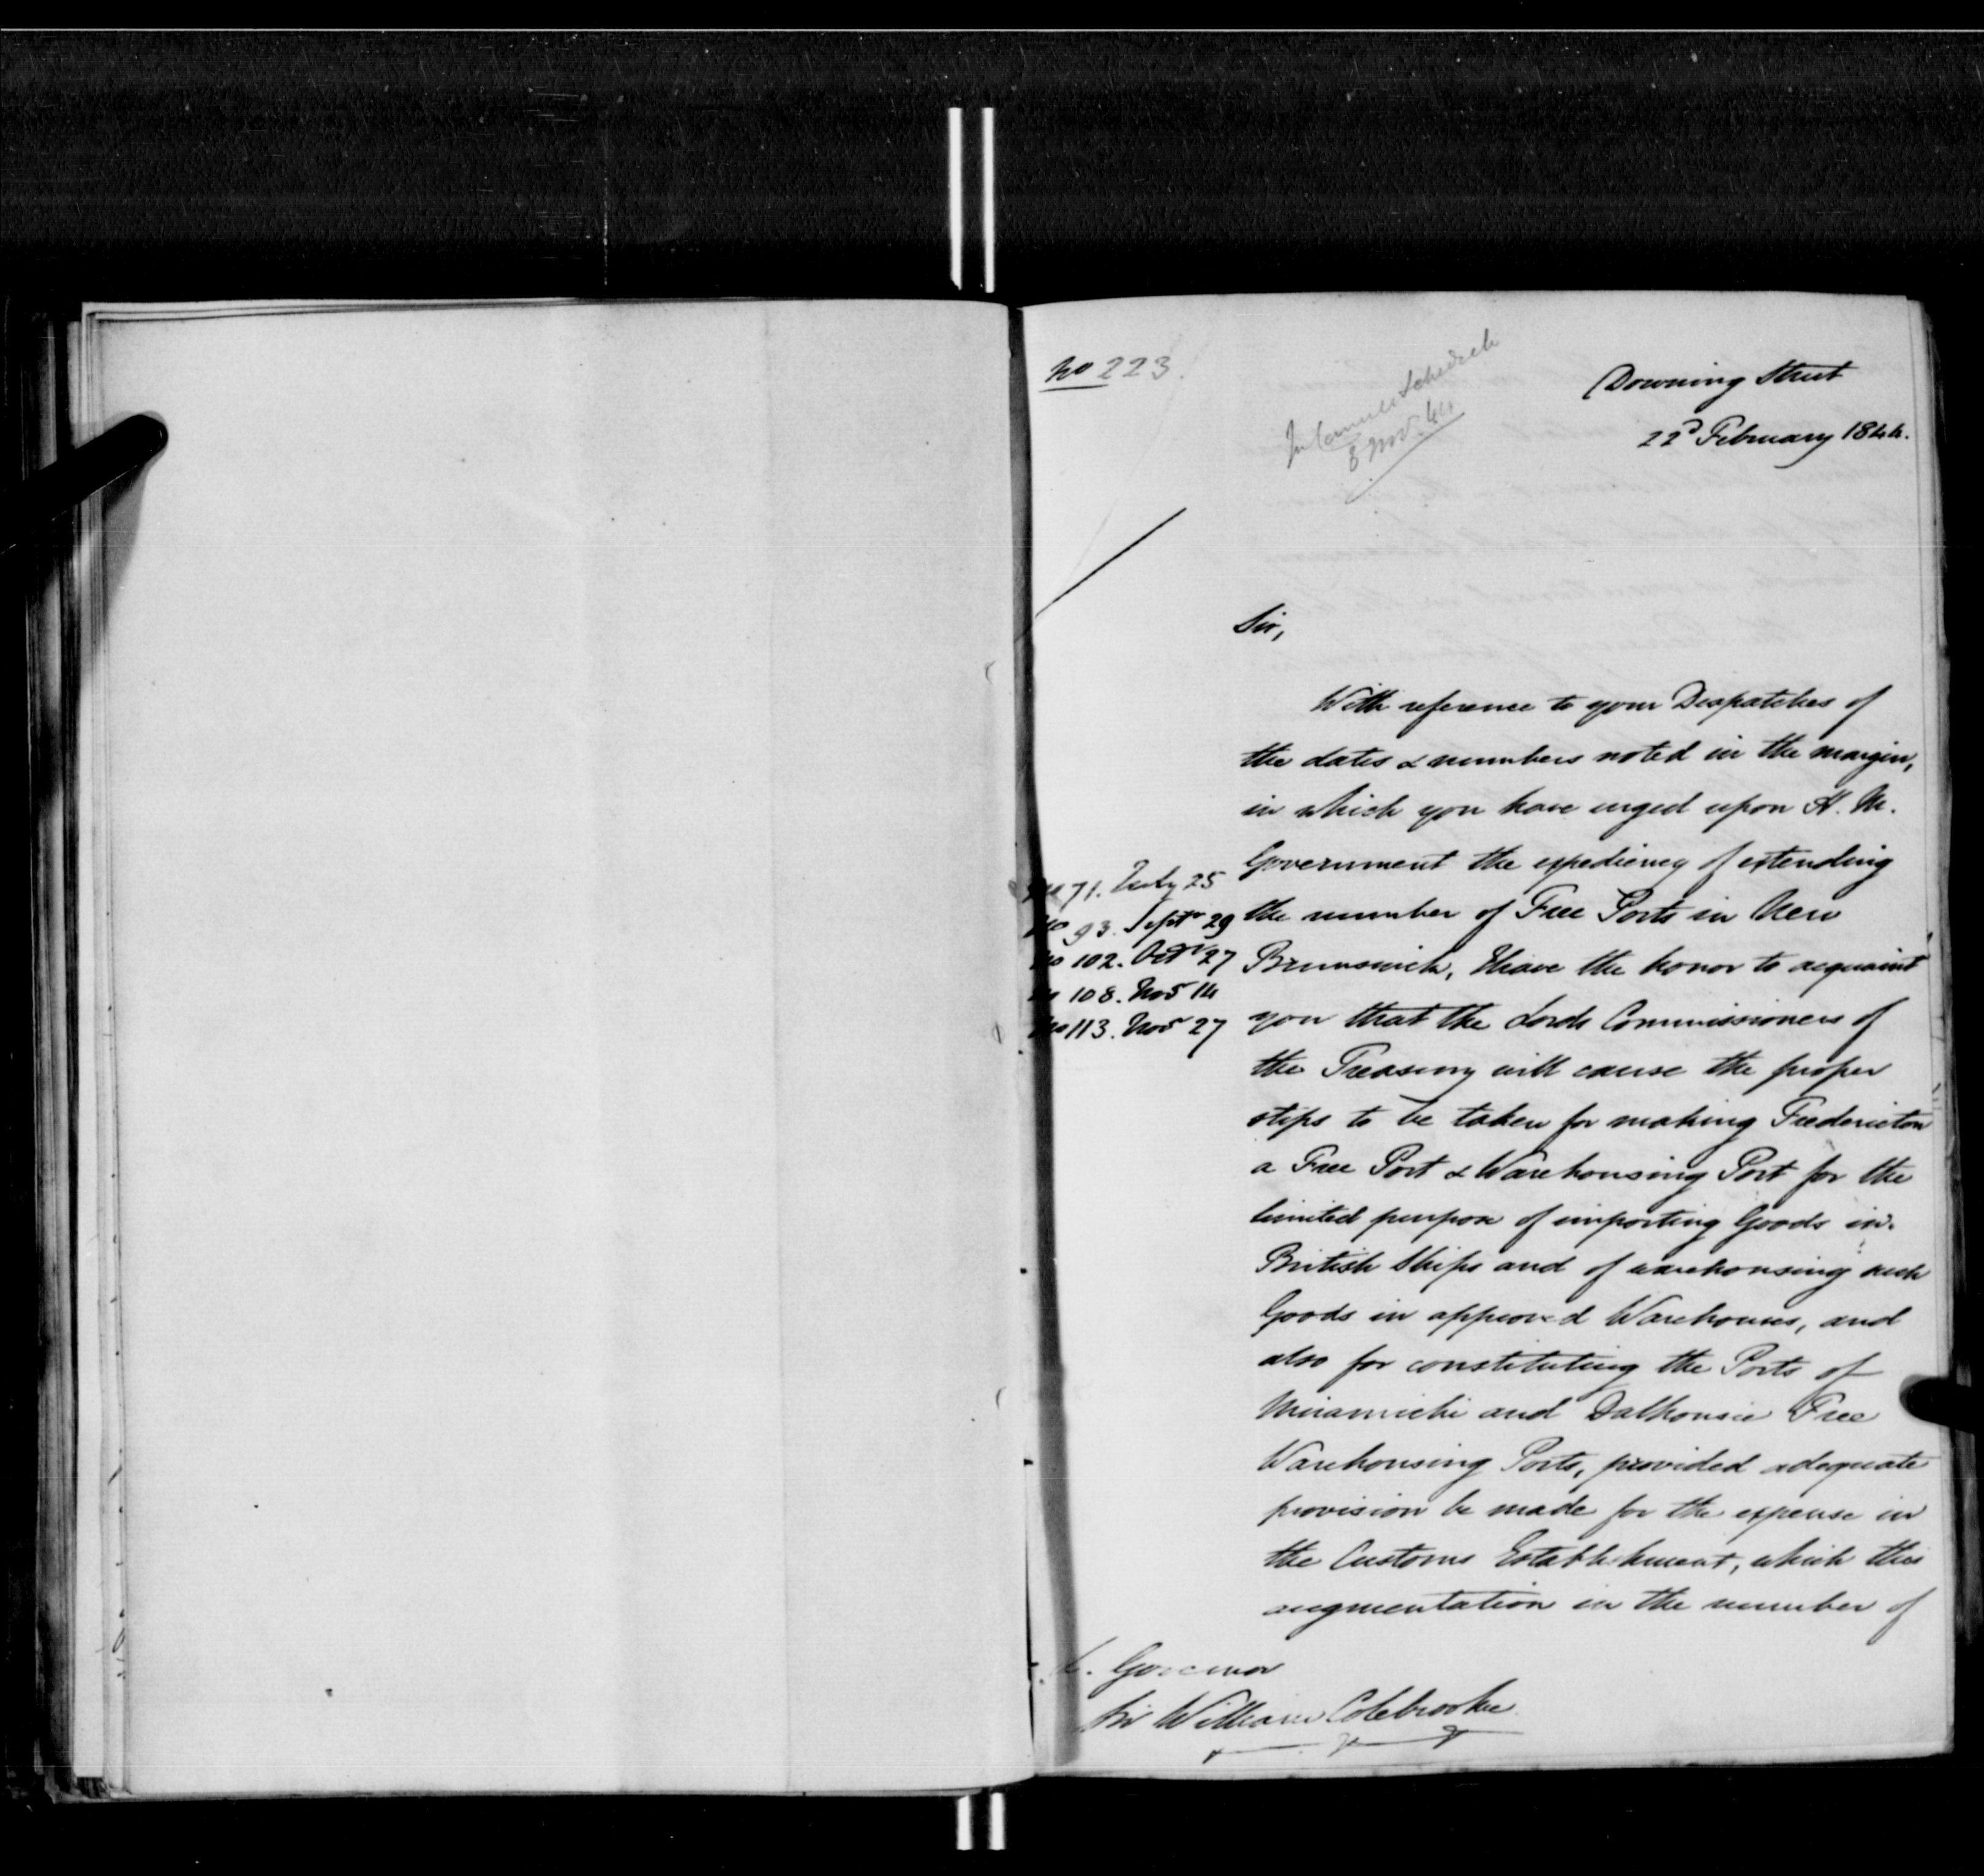 No 223.
In Council Schedule
5 Nov. 44
Downing Street
22d February 1844.
Sir,
With reference to your Despatches of
the dates & numbers noted in the margin,
in which you have urged upon H. M.
Government the expediency of extending
the number of Free Ports in New
Brunswick, I have the honor to acquaint
you that the Lords Commissioners of
the Treasury will cause the proper
steps to be taken for making Fredericton
a Free Port & Warehousing Port for the
limited purpose of importing Goods in
British Ships and of warehousing such
Goods in approved Warehouses, and
also for constituting the Ports of
Miramichi and Dalhousie Free
Warehousing Ports, provided adequate
provision be made for the expense in
the Customs Establishment, which this
augmentation in the number of
No 71. July 25
No 93. Septr 29
No 102. Octr 27
No 108. Novr 14
No 113. Novr 27
L. Governor
Sir William Colebrooke